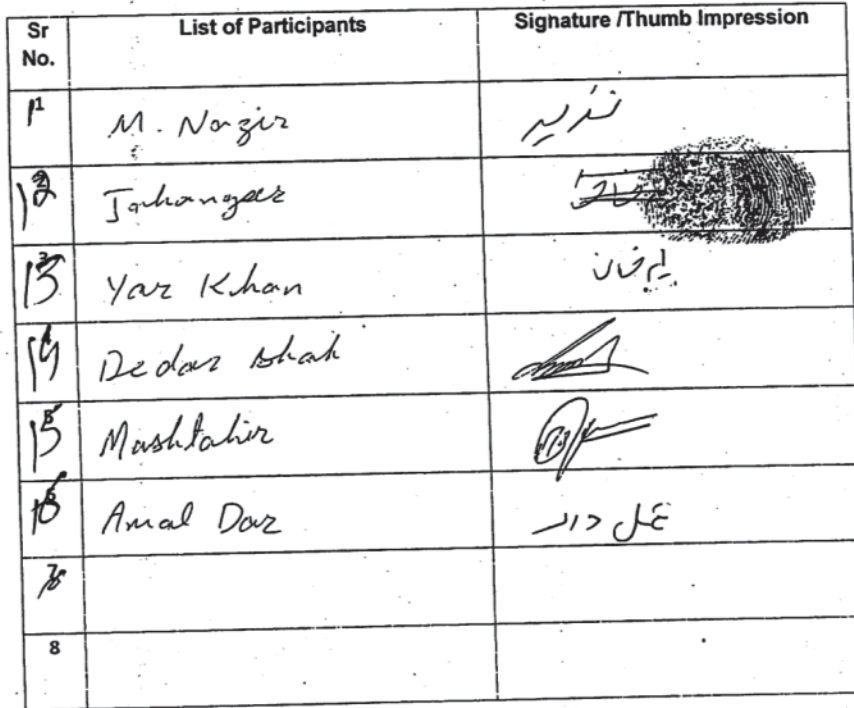 Sr No. List of Participants Signature /Thumb Impression
11 M. Nazir نذیر
12 Jahangeer
13 Yar Khan یارخان
14 Dedar Shah
15 Mashtahir
16 Amal Dar عمل دار
7
8